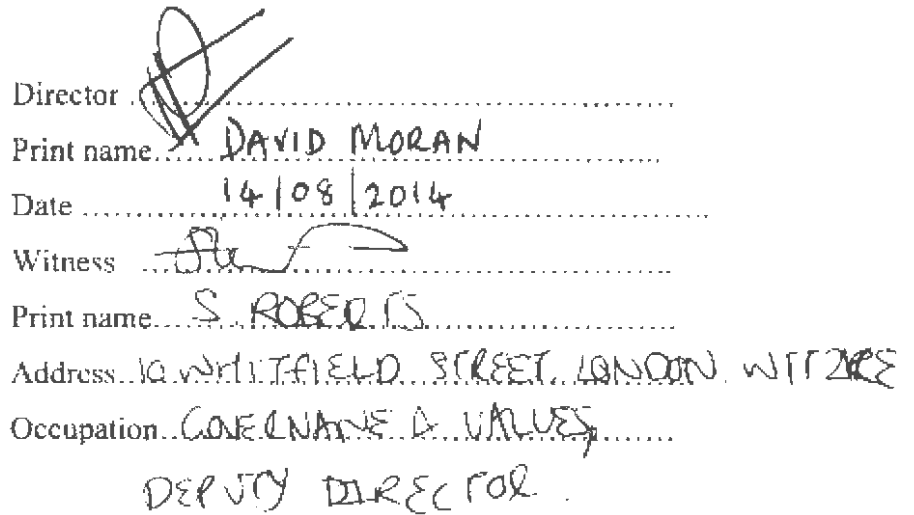 Director
Print name DAVID MORAN
Date 14/08/2014
Witness
Print name S ROBERTS
Address 10 WHITFIELD STREET LONDON W1T 2RE
Occupation GOVERNANCE & VALUES,
DEPUTY DIRECTOR.